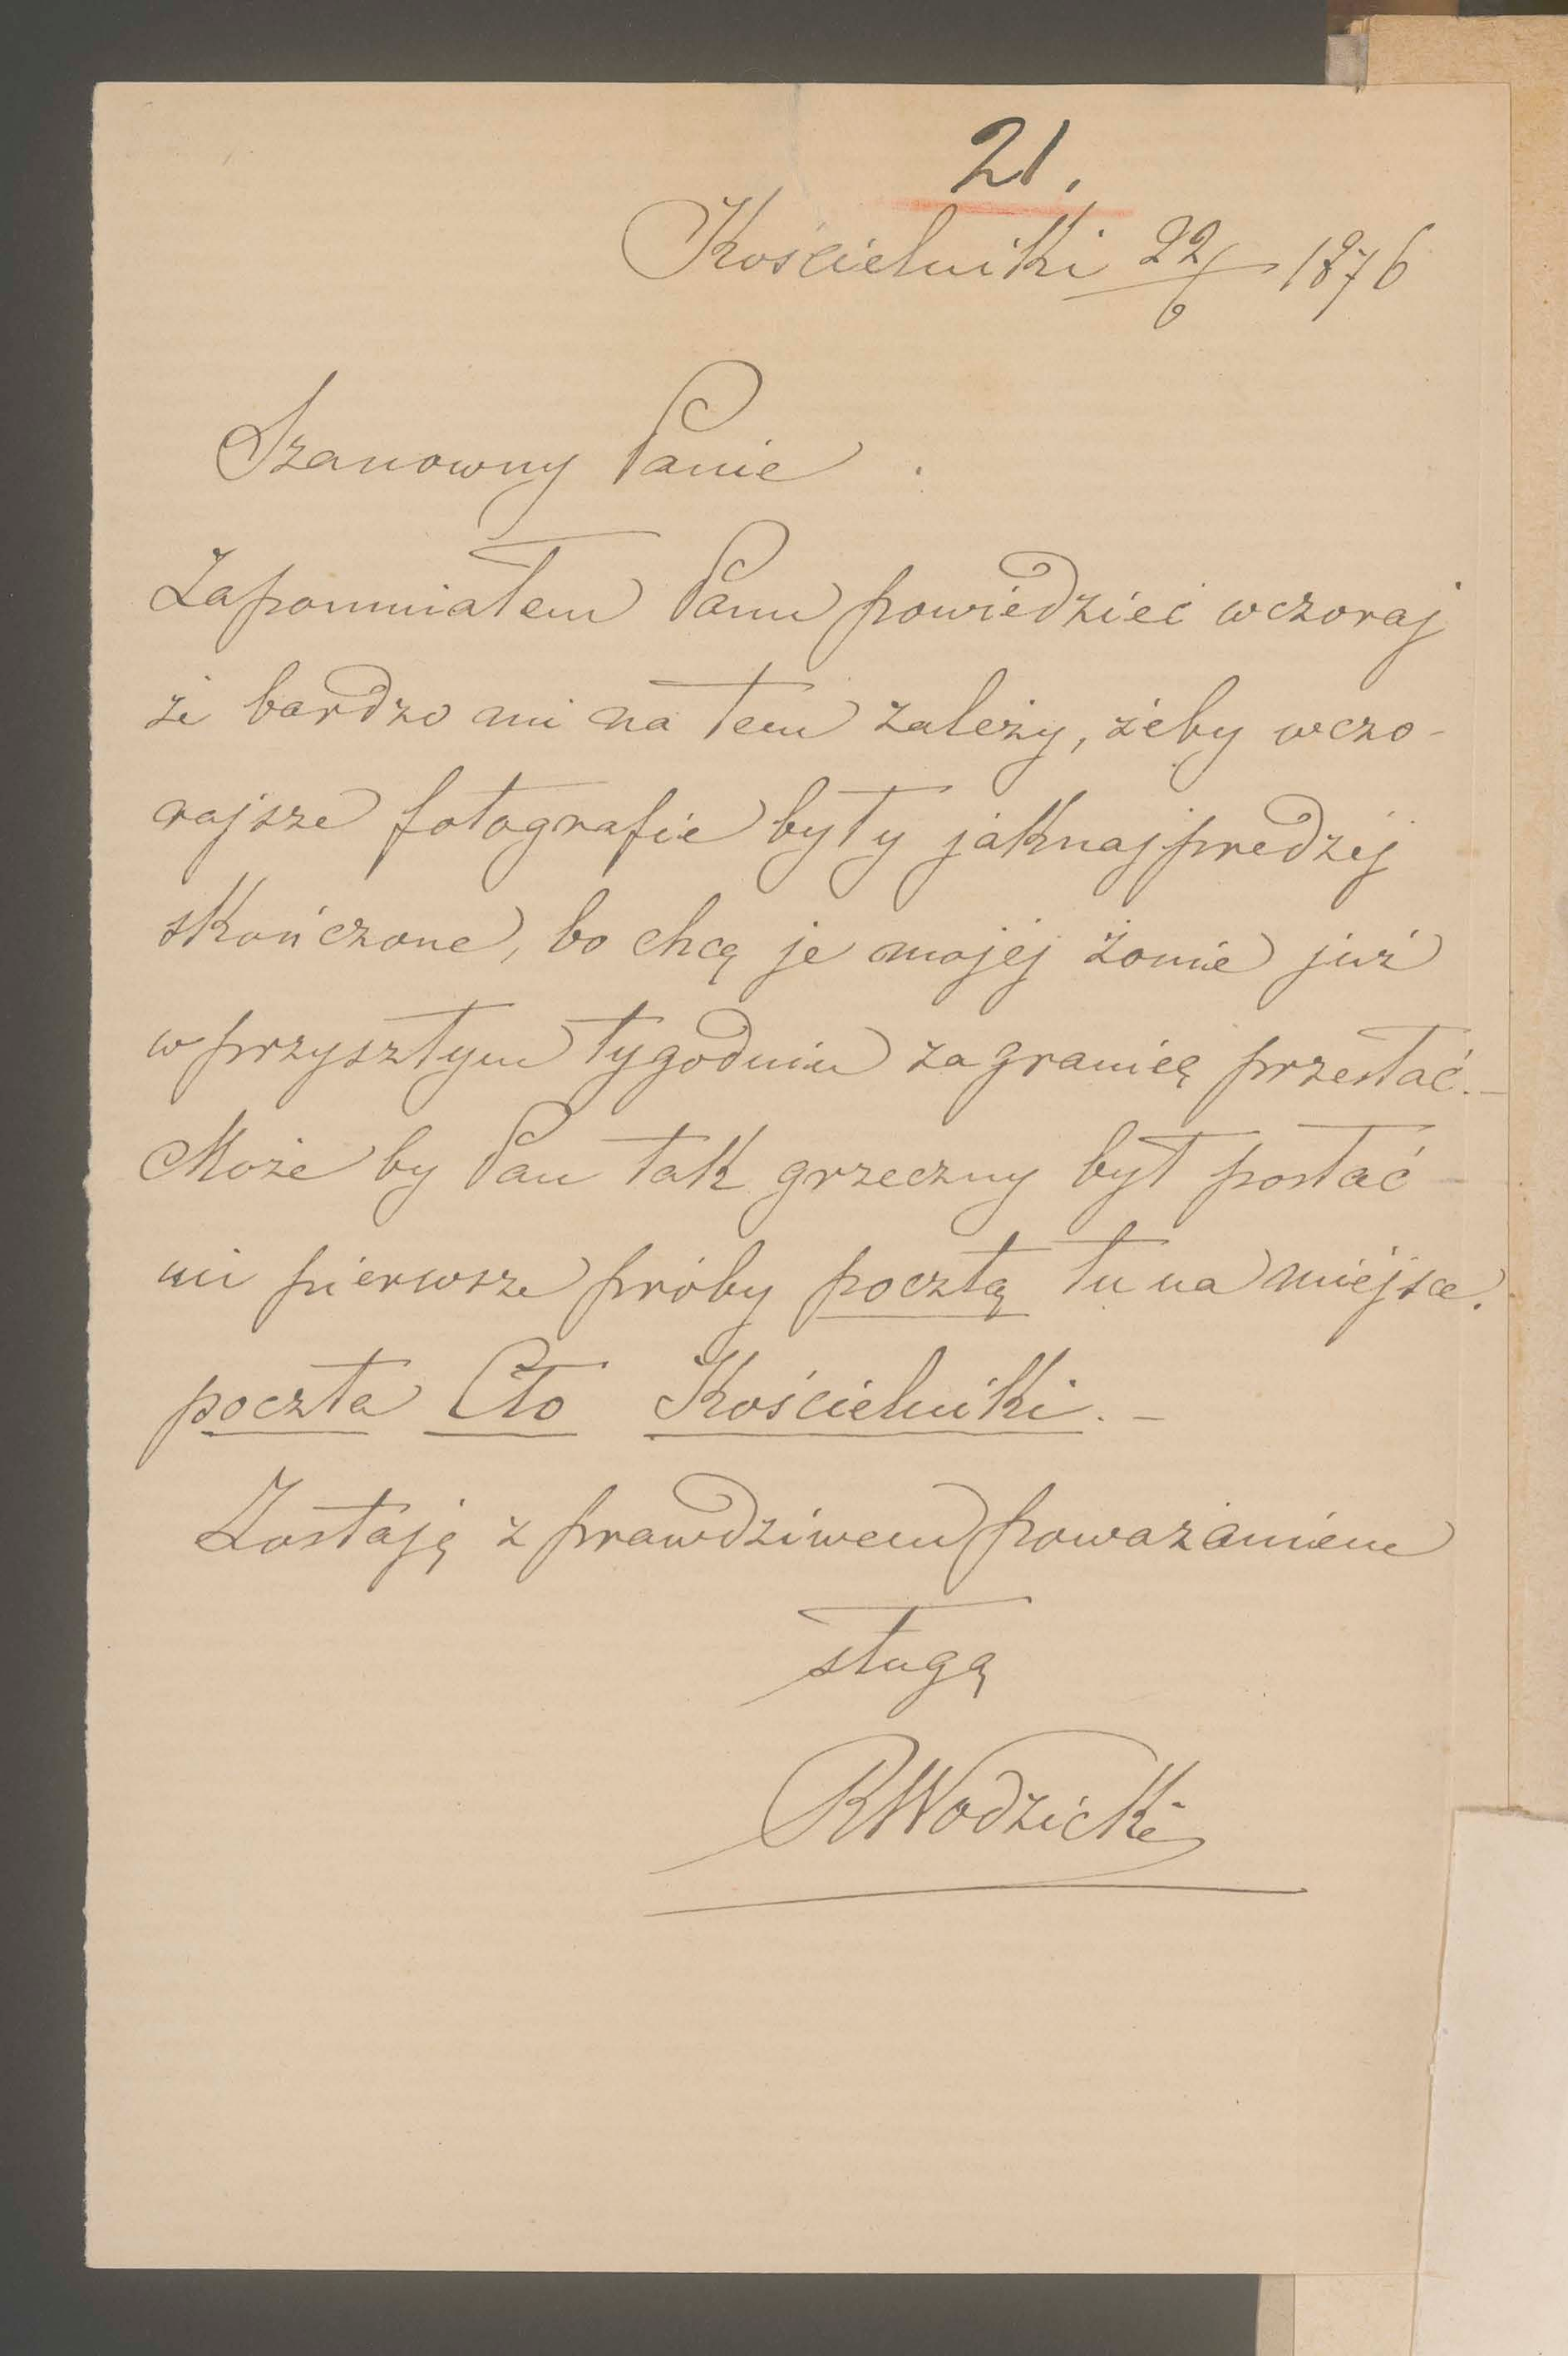 21.
Kościelniki 22/6 1876
Szanowny Panie.
Zapomniałem Panu powiedzieć wczoraj
że bardzo mi na tem zależy, żeby wczo-
rajsze fotografie były jaknajprędzej
skończone, bo chcę je mojej żonie już
w przyszłym tygodniu zagranicę przesłać.-
Może by Pan tak grzeczny był posłać
mi pierwsze próby pocztą tu na miejsce.
poczta Cło Kościelniki.-
Zostaję z prawdziwem poważaniem
sługą
RWodzicki